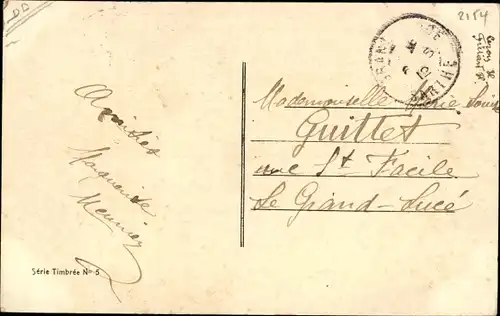 DD
2154
GRAND
SARTHE
Amitiés
Marguerite
Meunier
Mademoiselle Marie Louise
Guittet
rue St Facile
Le Grand-Lucé
Série Timbrée No 5